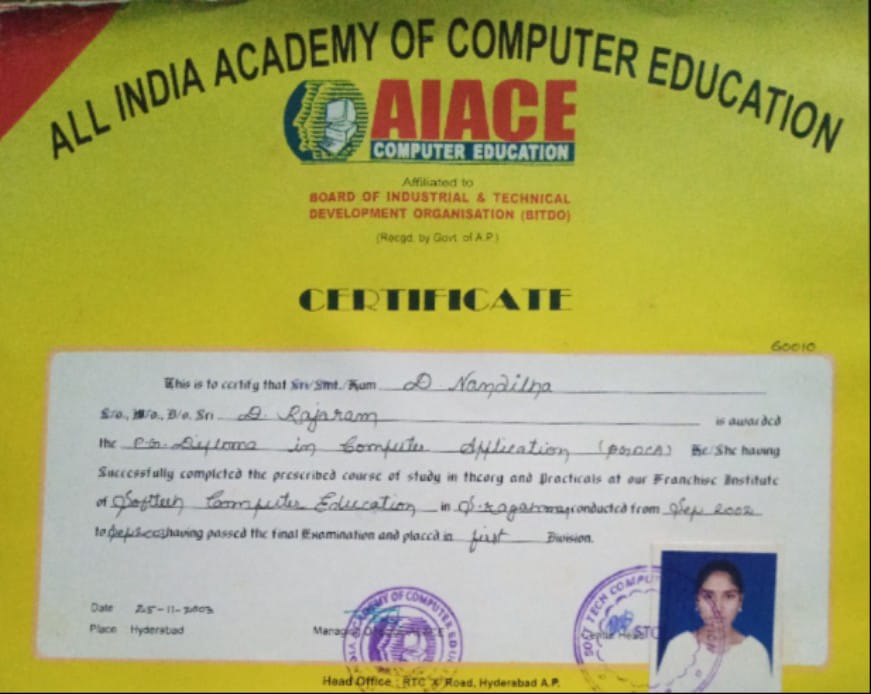 ALL INDIA ACADEMY OF COMPUTER EDUCATION
AIACE
COMPUTER EDUCATION
Affiliated to
BOARD OF INDUSTRIAL & TECHNICAL
DEVELOPMENT ORGANISATION (BITDO)
(Recgd. by Govt. of A.P.)
CERTIFICATE
60010
This is to certify that Sri/Smt./Kum D. Nandilha
S/o., W/o., D/o. Sri D. Rajaram is awarded
the P.G. Diploma in Computer Application (PGDCA) He/She having
Successfully completed the prescribed course of study in theory and Practicals at our Franchise Institute
of Softech Computer Education in conducted from Sep 2002
to having passed the final Examination and placed in first Division.
Date 25-11-2003
Place Hyderabad
Head Office : RTC 'X' Road, Hyderabad A.P.